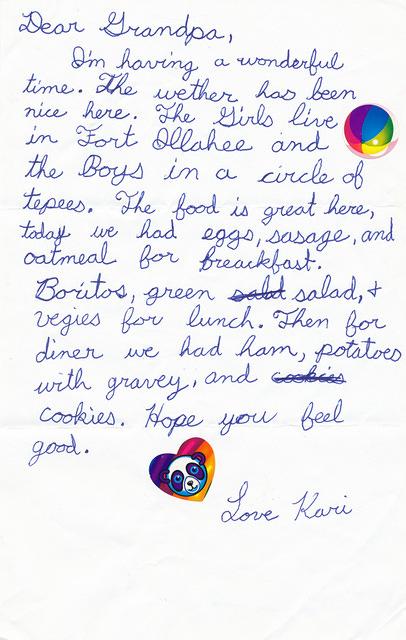 Dear Grandpa,
I'm having a wonderful
time. The wether has been
nice here. The Girls live
in Fort Illahee and
the Boys in a circle of
tepees. The food is great here,
today we had eggs, sasage, and
oatmeal for breackfast.
Boritos, green salad, +
vegies for lunch. Then for
diner we had ham, potatoes
with gravey, and cookies
cookies. Hope you feel
good.
Love Kari